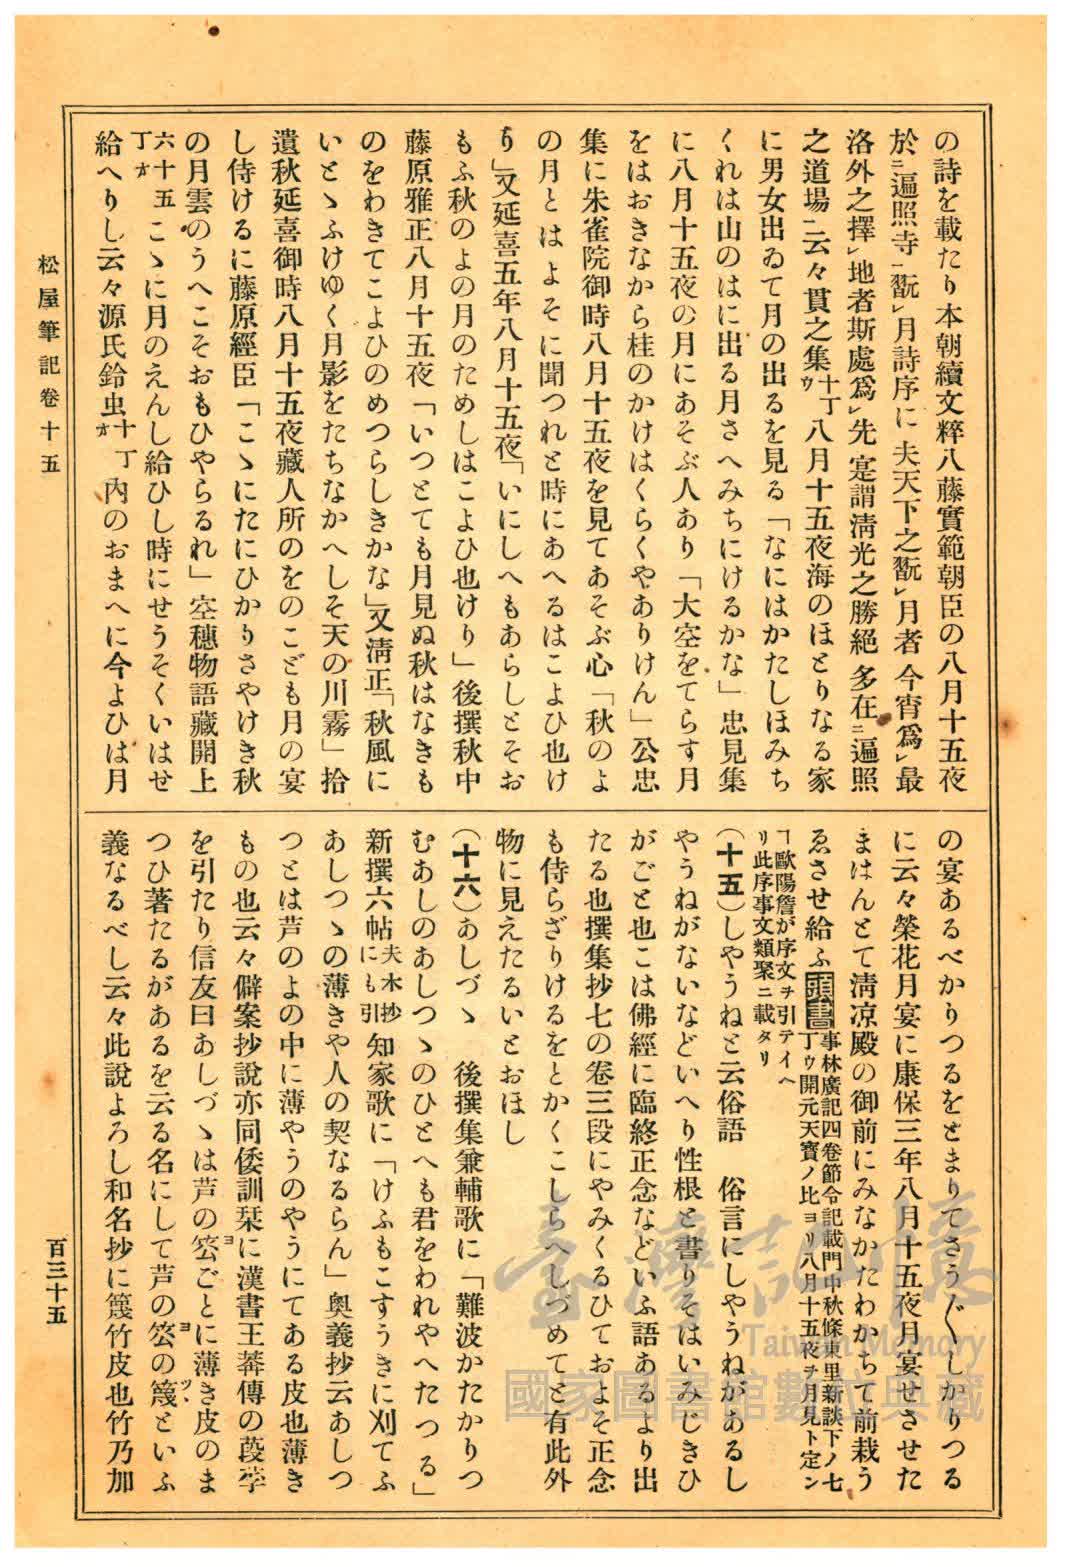 の詩を載たり本朝續文粹八藤實範朝臣の八月十五夜
於ニ遍照寺一翫レ月詩序に夫天下之翫レ月者今宵爲レ最
洛外之擇レ地者斯處爲レ先寔謂淸光之勝絕多在ニ遍照
之道場ニ云々貫之集十丁ウ八月十五夜海のほとりなる家
に男女出ゐて月の出るを見る「なにはかたしほみち
くれは山のはに出る月さへみちにけるかな」忠見集
に八月十五夜の月にあそぶ人あり「大空をてらす月
をはおきなから桂のかけはくらくやありけん」公忠
集に朱雀院御時八月十五夜を見てあそぶ心「秋のよ
の月とはよそに聞つれと時にあへるはこよひ也け
り」又延喜五年八月十五夜「いにしへもあらしとそお
もふ秋のよの月のためしはこよひ也けり」後撰秋中
藤原雅正八月十五夜「いつとても月見ぬ秋はなきも
のをわきてこよひのめつらしきかな」又淸正「秋風に
いとゝふけゆく月影をたちなかへしそ天の川霧」拾
遺秋延喜御時八月十五夜藏人所のをのこども月の宴
し侍けるに藤原經臣「こゝにたにひかりさやけき秋
の月雲のうへこそおもひやらるれ」空穗物語藏開上
六十五丁オこゝに月のえんし給ひし時にせうそくいはせ
給へりし云々源氏鈴虫十丁オ内のおまへに今よひは月
の宴あるべかりつるをとまりてさう〴〵しかりつる
に云々榮花月宴に康保三年八月十五夜月宴せさせた
まはんとて淸凉殿の御前にみなかたわかちて前栽う
ゑさせ給ふ頭書事林廣記四卷節令記載門中秋條東里新談下ノ七丁ウ開元天寶ノ比ヨリ八月十五夜ヲ月見ト定ン
ヿ歐陽詹が序文ヲ引テイヘリ此序事文類聚ニ載タリ
(十五)しやうねと云俗語　俗言にしやうねがあるし
やうねがないなどいへり性根と書りそはいみじきひ
がごと也こは佛經に臨終正念などいふ語あるより出
たる也撰集抄七の卷三段にやみくるひておよそ正念
も侍らざりけるをとかくこしらへしづめてと有此外
物に見えたるいとおほし
(十六)あしづゝ　後撰集兼輔歌に「難波かたかりつ
むあしのあしつゝのひとへも君をわれやへたつる」
新撰六帖夫木抄にも引知家歌に「けふもこすうきに刈てふ
あしつゝの薄きや人の契なるらん」奧義抄云あしつ
つとは芦のよの中に薄やうのやうにてある皮也薄き
もの也云々僻案抄說亦同倭訓栞に漢書王莽傳の葭莩
を引たり信友曰あしづゝは芦の䇠ヨごとに薄き皮のま
つひ著たるがあるを云る名にして芦の䇠ヨの篾ツヽといふ
義なるべし云々此說よろし和名抄に篾竹皮也竹乃加
松屋筆記卷十五
百三十五
臺灣記憶
Taiwan Memory
國家圖書館數位典藏